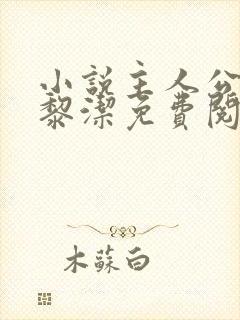 小說主人公
黎潔免費閱
木蘇白